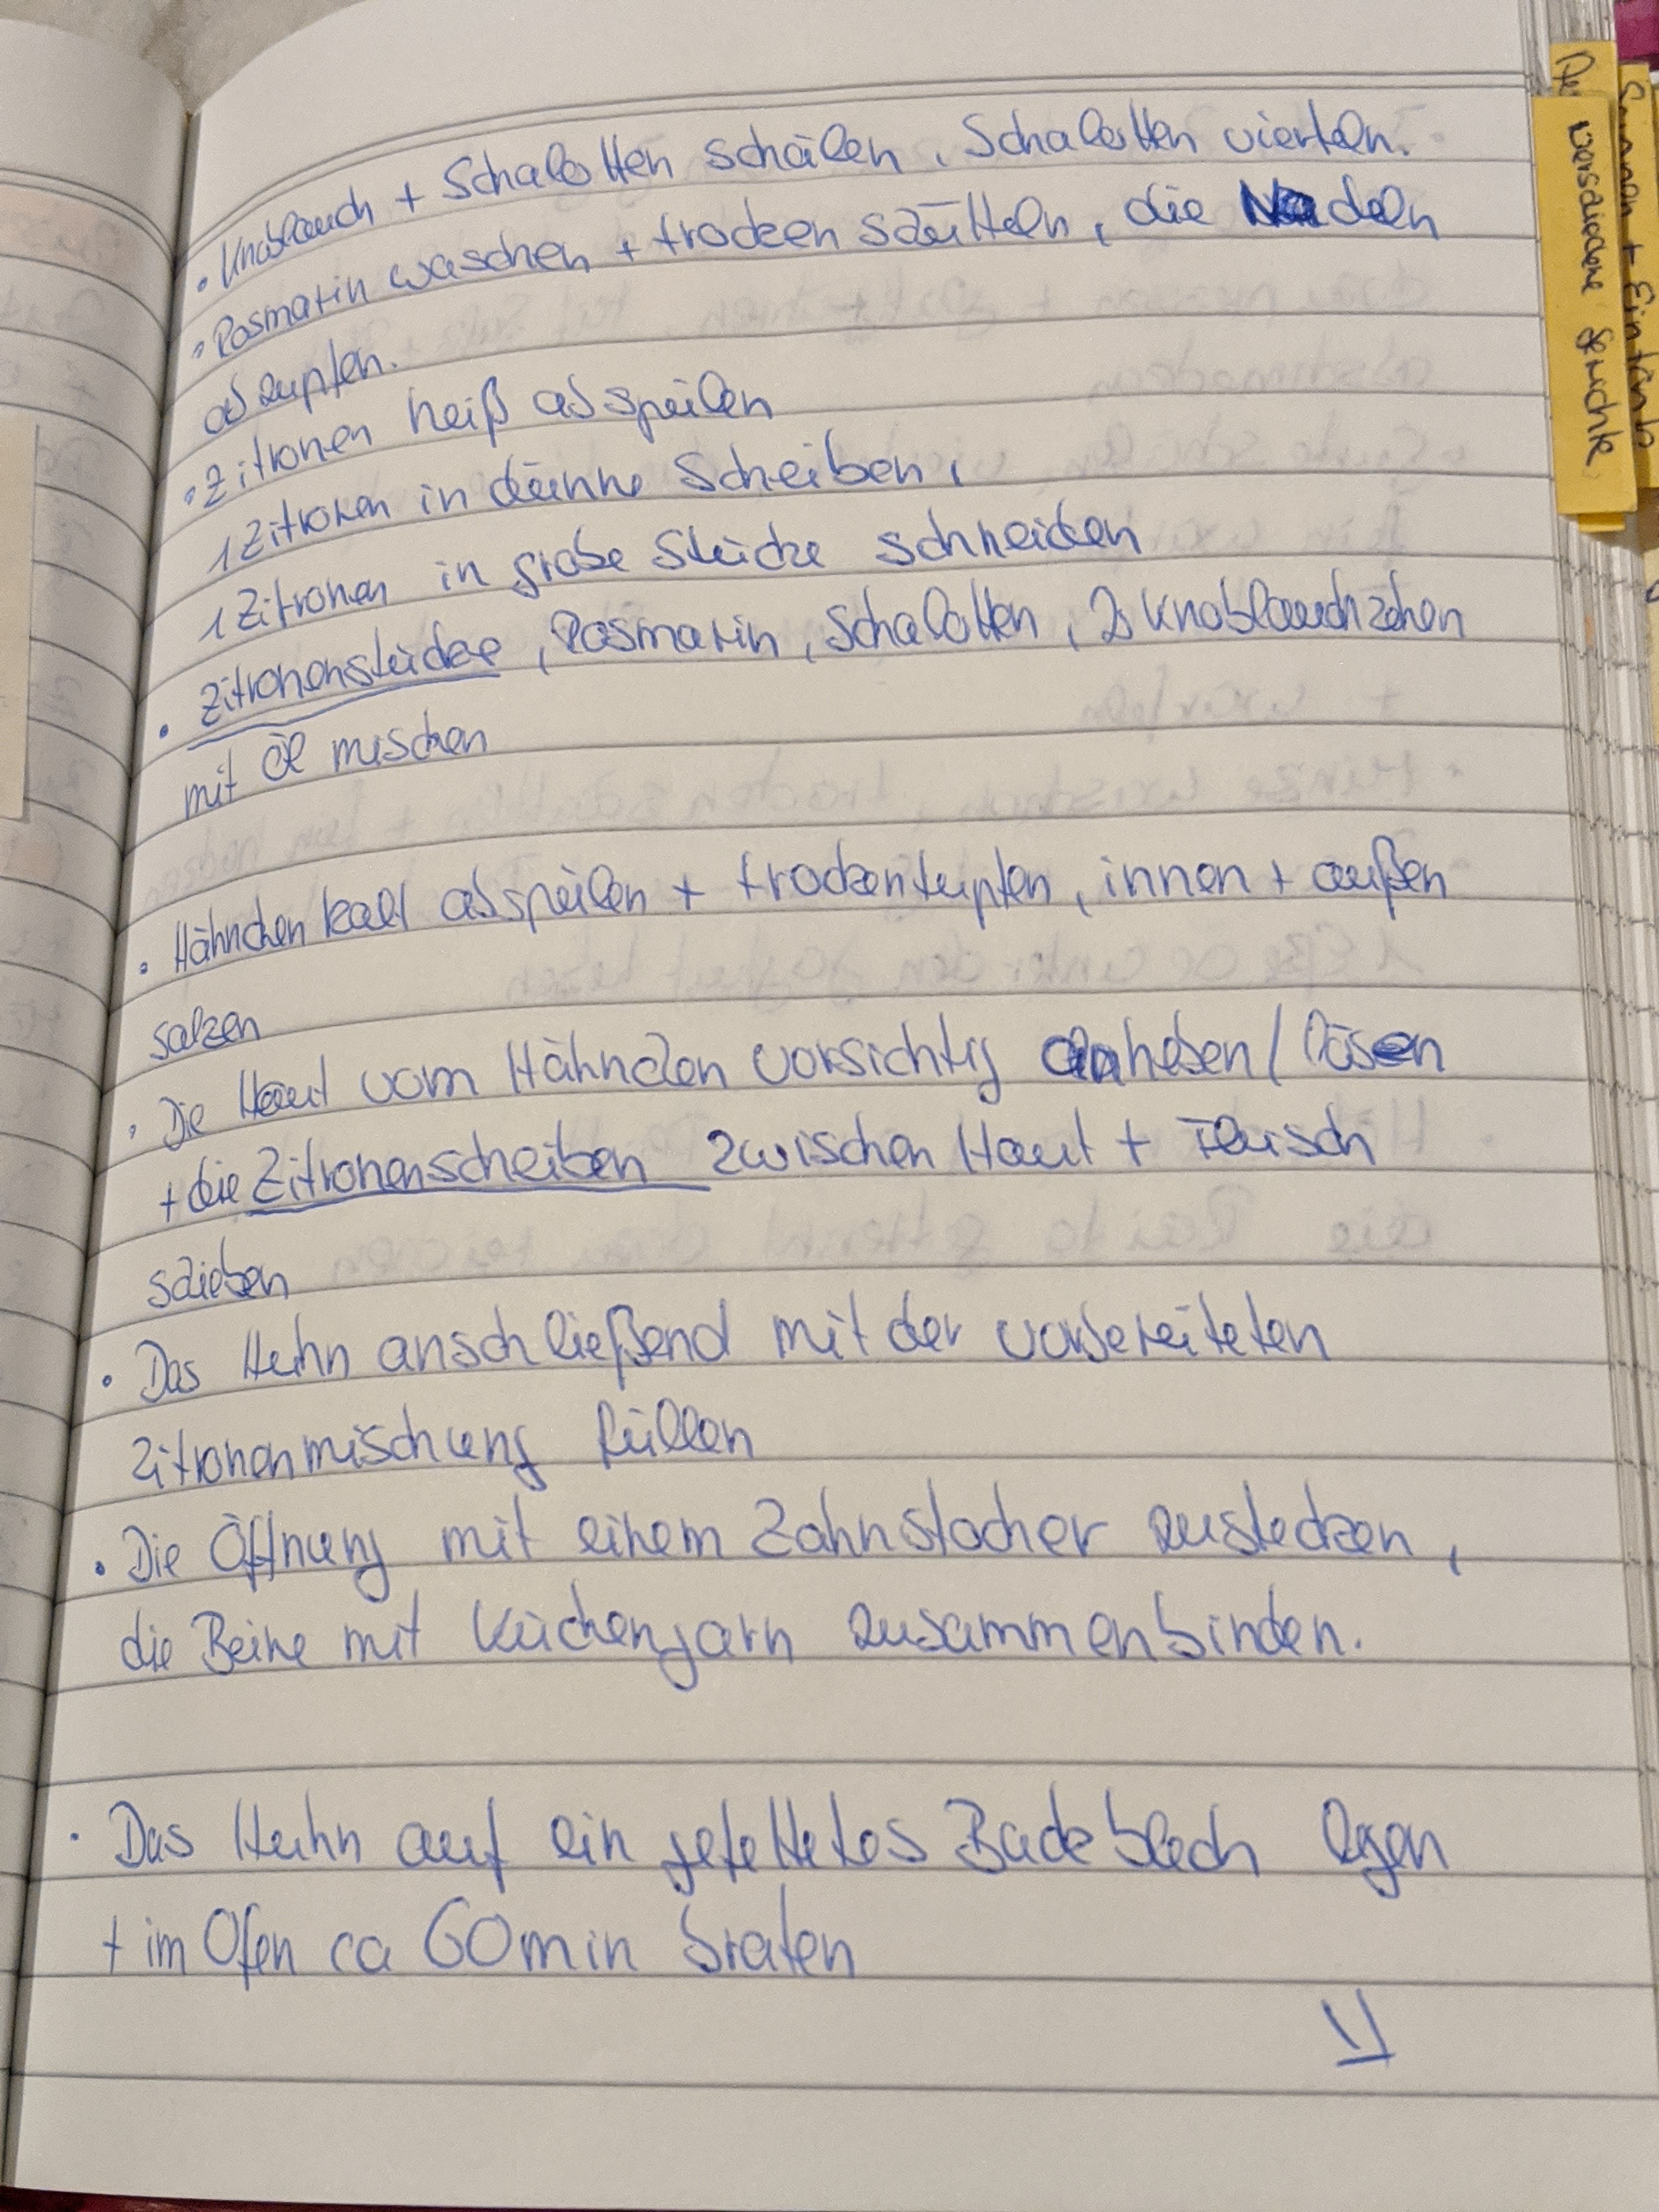 • Knoblauch + Schalotten schälen, Schalotten vierteln.
• Rosmarin waschen + trocken schütteln, die Nadeln
abzupfen.
• Zitronen heiß abspülen
1 Zitronen in dünne Scheiben,
1 Zitronen in grobe Stücke schneiden
• Zitronenstücke, Rosmarin, Schalotten, 2 Knoblauchzehen
mit Öl mischen
• Hähnchen kalt abspülen + trockentupfen, innen + außen
salzen
• Die Haut vom Hähnchen vorsichtig anheben / lösen
+ die Zitronenscheiben zwischen Haut + Fleisch
schieben
• Das Huhn anschließend mit der vorbereiteten
Zitronenmischung füllen
• Die Öffnung mit einem Zahnstocher zustecken,
die Beine mit Küchengarn zusammenbinden.
• Das Huhn auf ein gefettetes Backblech legen
+ im Ofen ca 60 min braten
verschiedene Gerichte
+ Eintöpfe